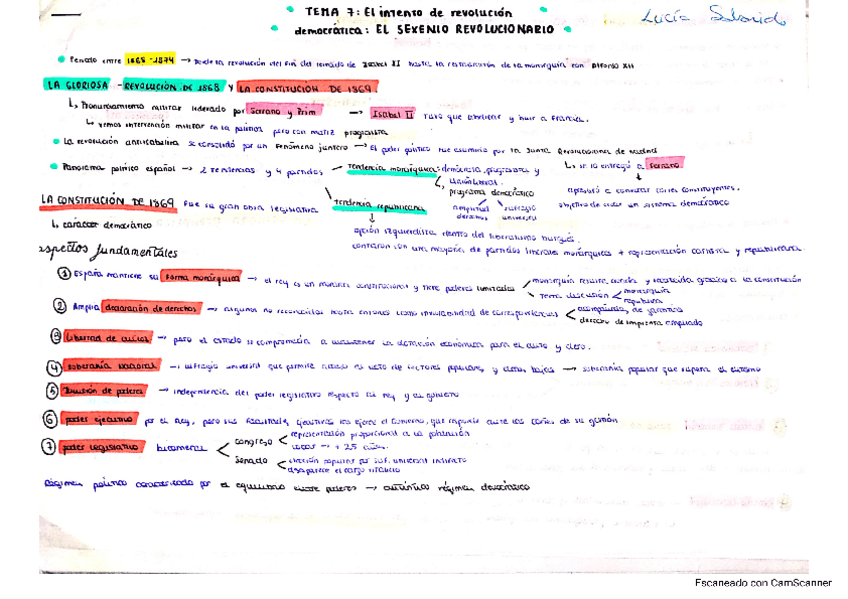 TEMA 7: El intento de revolución
democrática: EL SEXENIO REVOLUCIONARIO
Periodo entre 1868-1874 → Desde la revolución del fin del reinado de Isabel II hasta la restauración de la monarquía con Alfonso XII
LA GLORIOSA - REVOLUCIÓN DE 1868 Y LA CONSTITUCIÓN DE 1869
↳ Pronunciamiento militar liderado por Serrano y Prim → Isabel II tuvo que abdicar y huir a Francia.
↳ vemos intervención militar en la política pero con matiz progresista
La revolución antiisabelina se consolidó por un fenómeno juntero → El poder político fue asumido por la Junta Revolucionaria de Madrid
↳ se lo entregó a Serrano
Panorama político español → 2 tendencias y 4 partidos → tendencia monárquica: demócrata, progresista y
unión liberal.
programa democrático
amplitud derechos
sufragio universal
aprobó a convocar cortes constituyentes.
objetivo de crear un sistema democrático
tendencia republicana
LA CONSTITUCIÓN DE 1869 fue su gran obra legislativa
↳ carácter democrático
opción izquierdista dentro del liberalismo burgués.
contaron con una mayoría de partidos liberales monárquicos + representación carlista y republicana
aspectos fundamentales
① España mantiene su forma monárquica → el rey es un monarca constitucional y tiene poderes limitados
monarquía
republicana
② Amplia declaración de derechos → algunos no reconocidos hasta entonces como inviolabilidad de correspondencia
derecho de imprenta ampliado
③ Libertad de cultos → pero el estado se comprometía a mantener la dotación económica para el culto y clero.
④ soberanía nacional → sufragio universal que permite acceso al voto de sectores populares, y clases bajas → soberanía popular que supera el
⑤ División de poderes → independencia del poder legislativo respecto al rey y al gobierno
⑥ poder ejecutivo por el Rey, pero sus facultades ejecutivas las ejerce el Gobierno, que responde ante las cortes de su gestión
⑦ poder legislativo bicameral
congreso
representación proporcional a la población
+ 25 años
Senado
elección popular por suf. universal indirecto
desaparece el cargo vitalicio
Régimen político caracterizado por el equilibrio entre poderes → auténtico régimen democrático
Escaneado con CamScanner